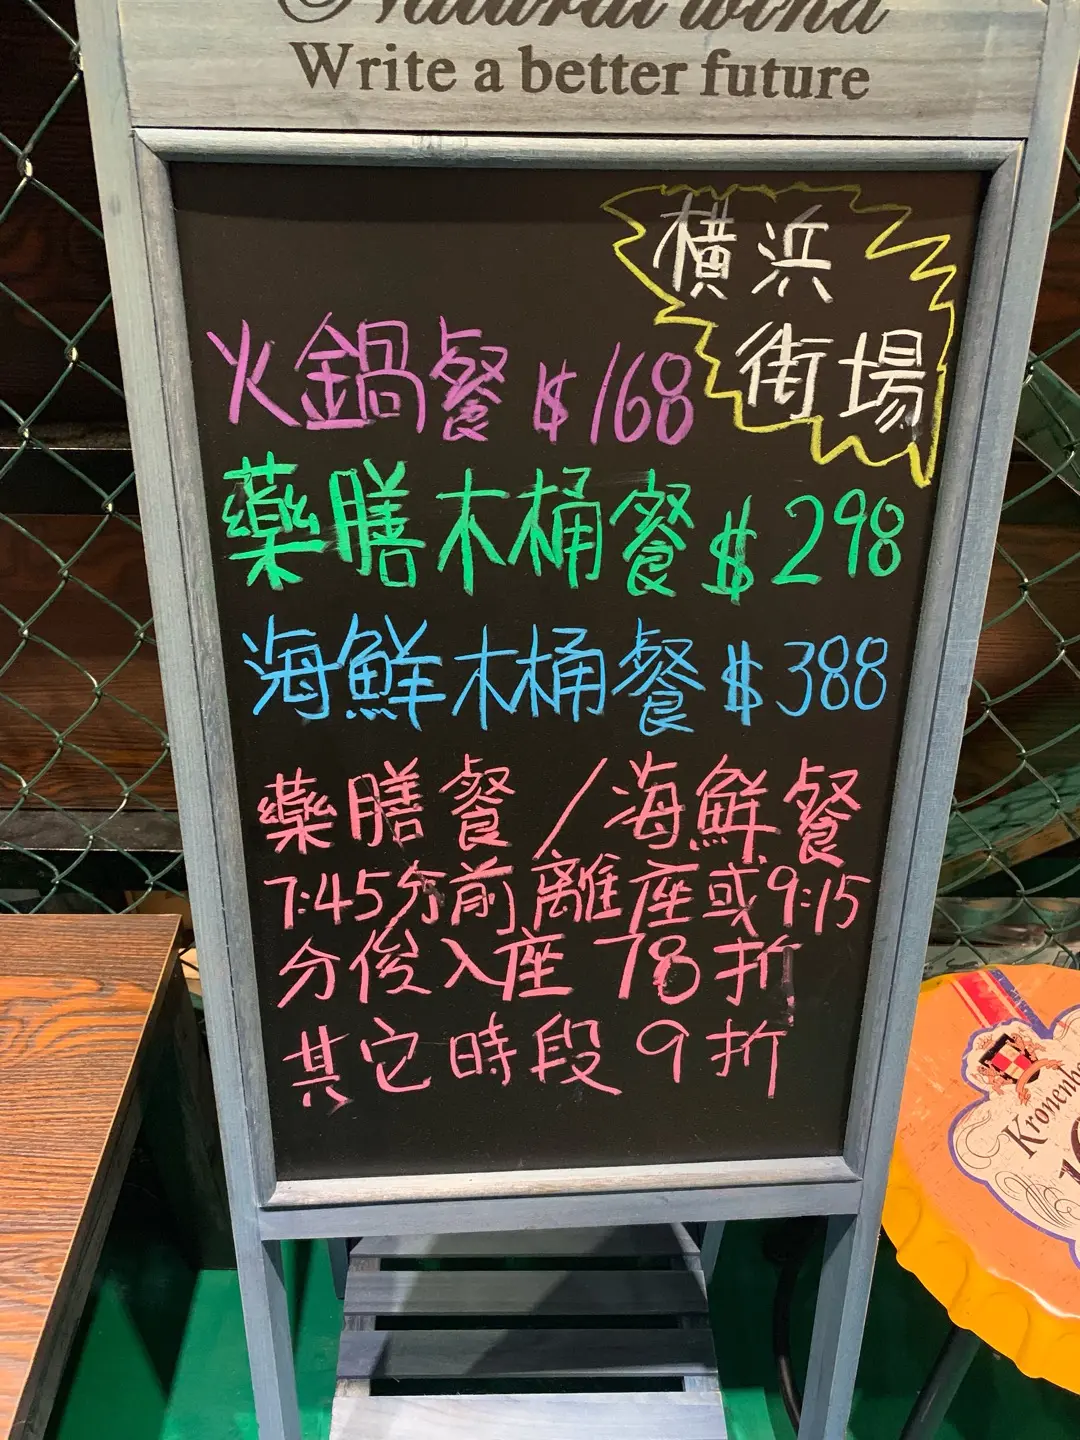 Natural wind
Write a better future
橫浜
街場
火鍋餐 $168
藥膳木桶餐 $298
海鮮木桶餐 $388
藥膳餐/海鮮餐
7:45分前離座或9:15
分後入座 78折
其它時段 9折